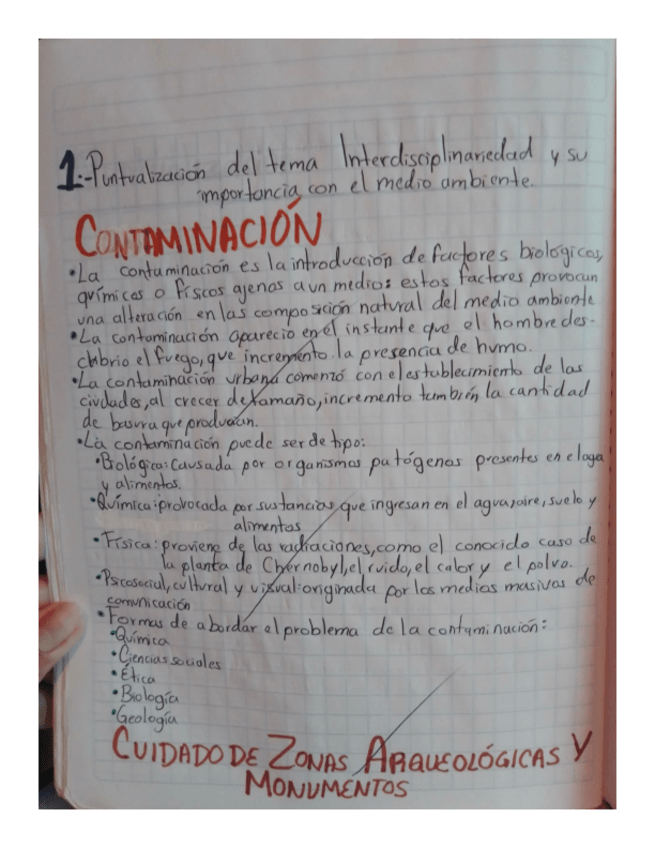 1.- Puntualización del tema Interdisciplinariedad y su
importancia con el medio ambiente.
CONTAMINACIÓN
•La contaminación es la introducción de factores biológicos,
químicos o físicos ajenos a un medio: estos factores provocan
una alteración en las composición natural del medio ambiente
•La contaminación aparecio en el instante que el hombre des-
cubrio el fuego, que incremento la presencia de humo.
•La contaminación urbana comenzó con el establecimiento de las
ciudades, al crecer de tamaño, incremento también la cantidad
de basura que producían.
•La contaminación puede ser de tipo:
•Biológica: Causada por organismos patógenos presentes en el agua
y alimentos.
•Química: provocada por sustancias que ingresan en el agua, aire, suelo y
alimentos
•Física: proviene de las radiaciones, como el conocido caso de
la planta de Chernobyl, el ruido, el calor y el polvo.
•Psicosocial, cultural y visual: originada por los medios masivos de
comunicación
•Formas de abordar el problema de la contaminación:
•Química
•Ciencias sociales
•Ética
•Biología
•Geología
CUIDADO DE ZONAS ARQUEOLÓGICAS Y
MONUMENTOS